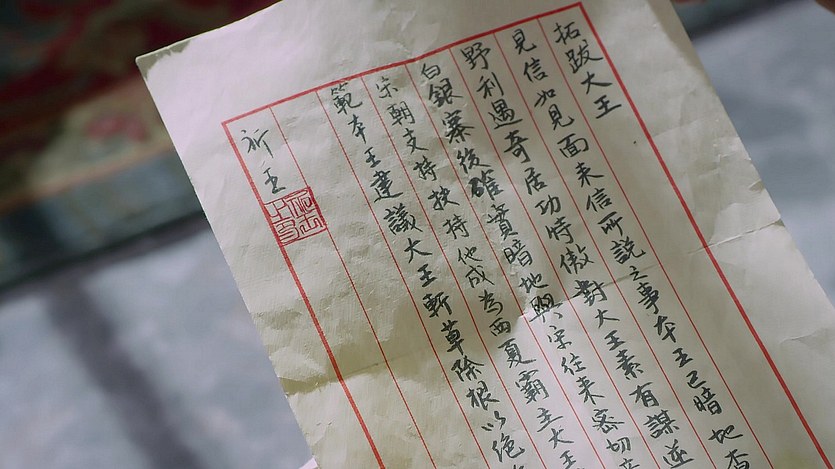 拓跋大王
見信如見面来信所説之事本王已暗地
野利遇奇居功恃傲對大王素有謀逆
白銀寨後確實暗地與宋往来密切
宋朝支持扶持他成為西夏霸主大王
範本王建議大王斬草除根以绝
祈王